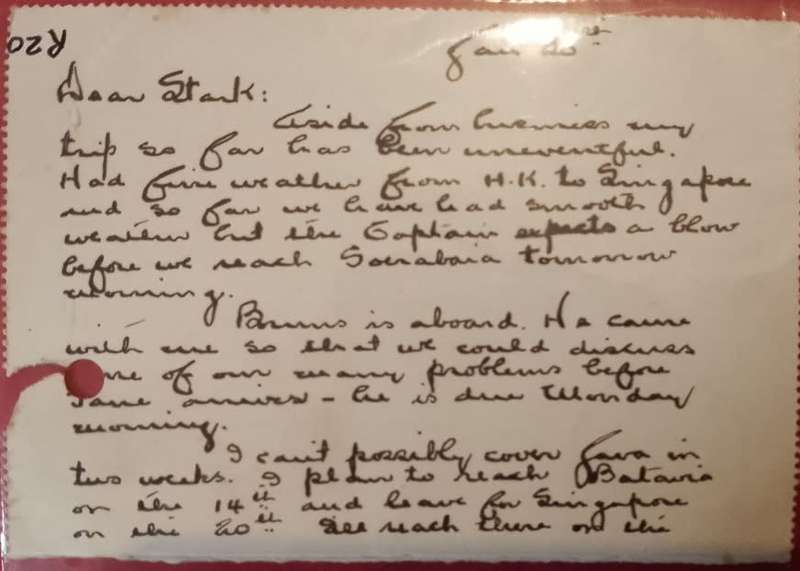 R20
Jan 20st
Dear Stark:
Aside from business my
trip so far has been uneventful.
Had fine weather from H.K. to Singapore
and so far we have had smooth
weather but the Captain expects a blow
before we reach Soerabaia tomorrow
morning.
Bruns is aboard. He came
with me so that we could discuss
of our many problems before
arrives - he is due Monday
morning.
I can't possibly cover Java in
two weeks. I plan to reach Batavia
on the 14th and leave for Singapore
on the 20th reach there on the